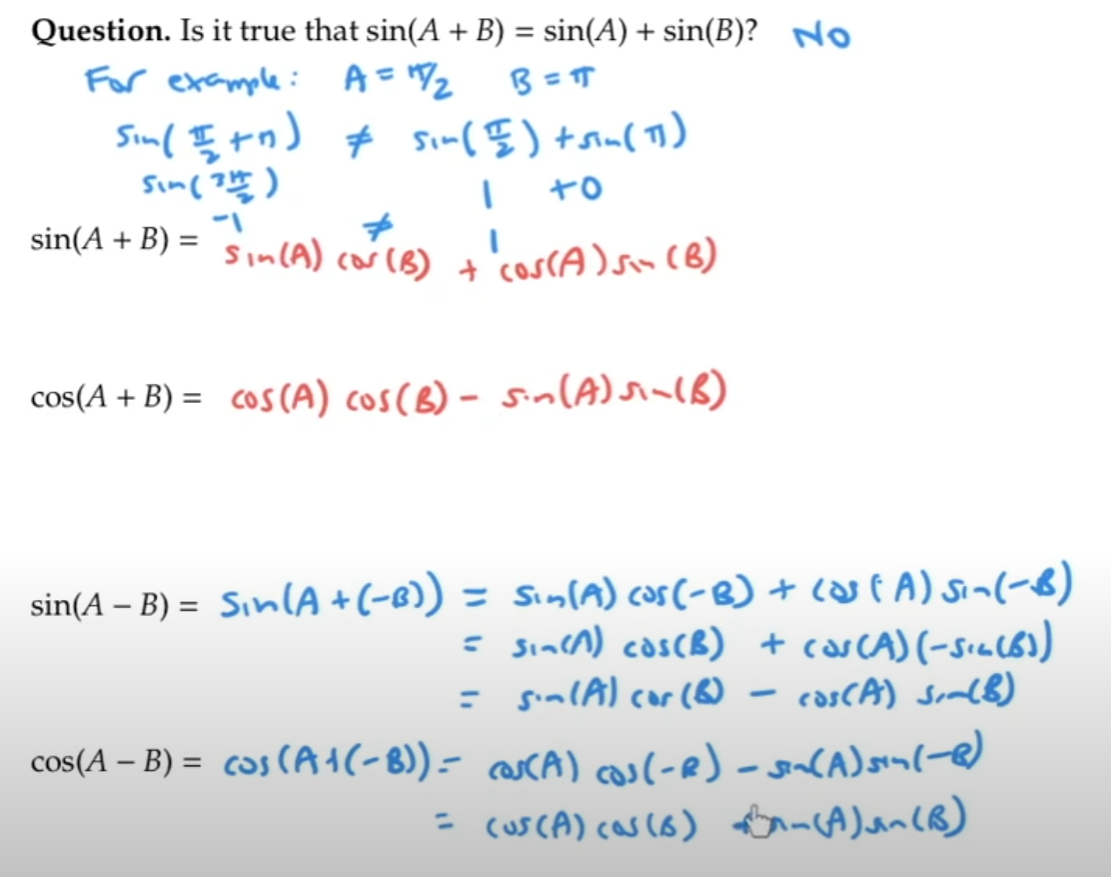 Question. Is it true that sin(A + B) = sin(A) + sin(B)? NO
For example: A = π/2 B = π
sin(π/2 + π) ≠ sin(π/2) + sin(π)
sin(3π/2) 1 + 0
-1 ≠ 1
sin(A + B) = sin(A) cos(B) + cos(A) sin(B)
cos(A + B) = cos(A) cos(B) - sin(A) sin(B)
sin(A − B) = sin(A + (-B)) = sin(A) cos(-B) + cos(A) sin(-B)
= sin(A) cos(B) + cos(A)(-sin(B))
= sin(A) cos(B) - cos(A) sin(B)
cos(A − B) = cos(A + (-B)) = cos(A) cos(-B) - sin(A) sin(-B)
= cos(A) cos(B) + sin(A) sin(B)